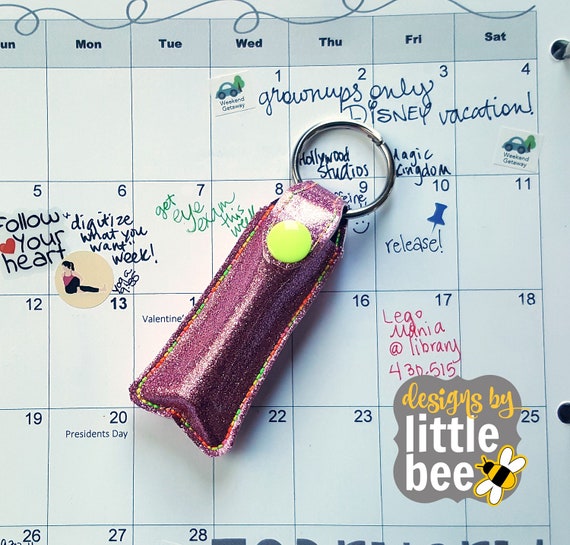 un Mon Tue Wed Thu Fri Sat
1 2 3 4
Weekend
Getaway
grownups only
DISNEY vacation!
Weekend
Getaway
Hollywood
Studios
Magic
Kingdom
5 6 7 8 9 10 11
Follow
Your
heart
digitize
what you
want
week!
yoga
get
eye
exam
this
week
release!
12 13 17 18
Valentine's
Lego
Mania
@ library
430-515
19 20 22 23 25
Presidents Day
designs by
little
bee
26 27 28